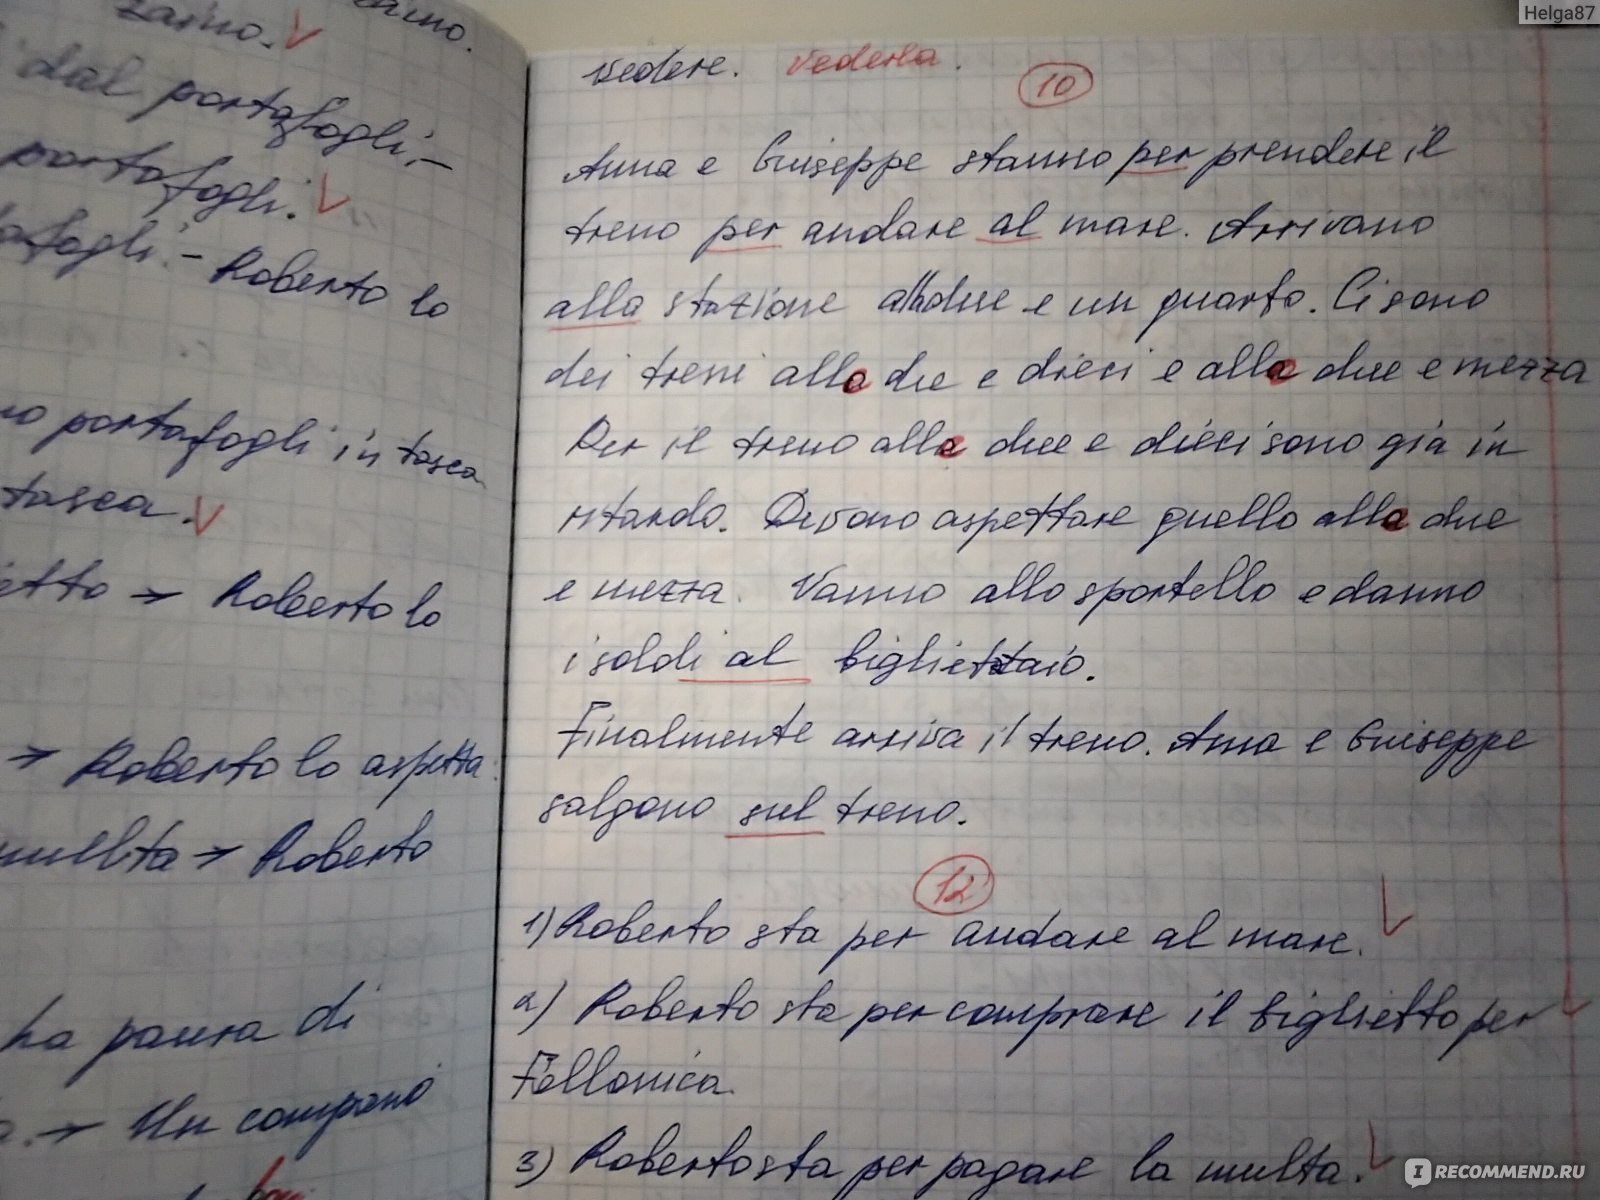 Helga87
zaino.
dal portafogli.-
portafogli.
- Roberto lo
portafogli in tasca
tasca.
→ Roberto lo
→ Roberto lo aspetta.
→ Roberto
ha paura di
→ Un compano
vedere. Vederla.
10
Anna e Giuseppe stanno per prendere il
treno per andare al mare. Arrivano
alla stazione due e un quarto. Ci sono
dei treni alle due e dieci e alle due e mezza
Per il treno alle due e dieci sono già in
ritardo. Devono aspettare quello alle due
e mezza. Vanno allo sportello e danno
i soldi al bigliettaio.
Finalmente arriva il treno. Anna e Giuseppe
salgono sul treno.
12
1) Roberto sta per andare al mare.
2) Roberto sta per comprare il biglietto per
Follonica.
3) Roberto sta per pagare la multa.
IRECOMMEND.RU